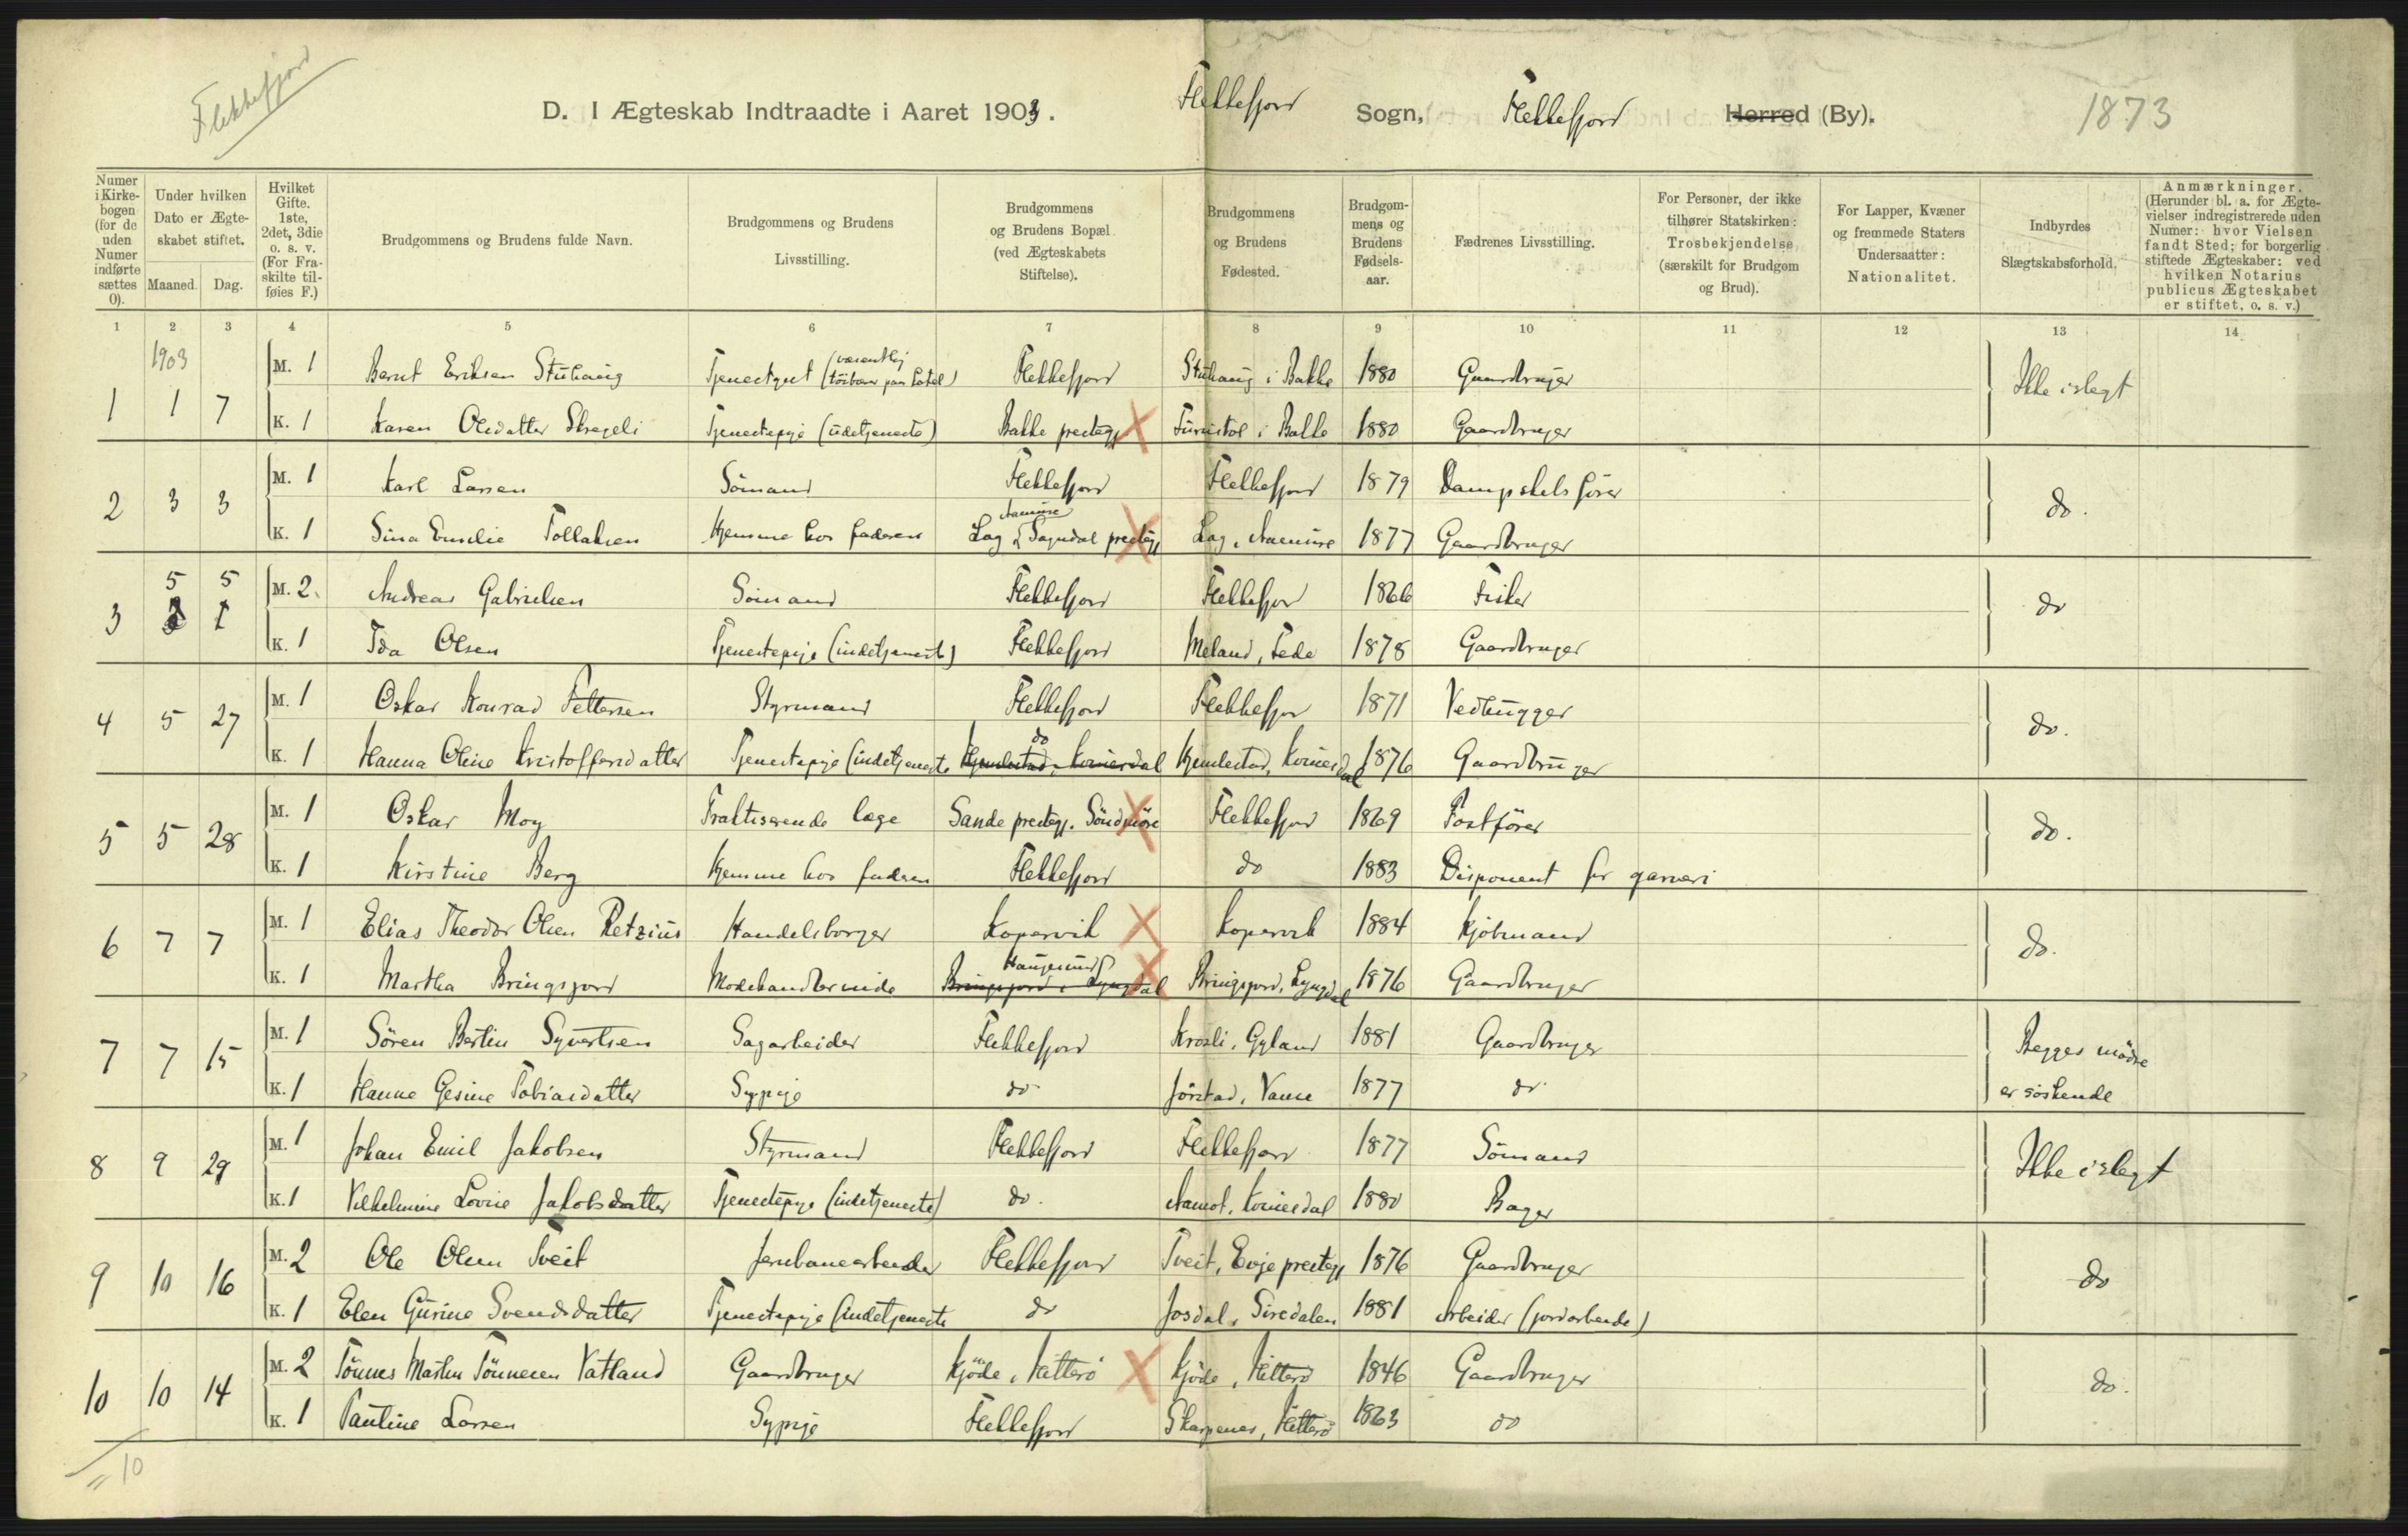 Flekkefjord
D. I Ægteskab Indtraadte i Aaret 1903. Flekkefjord Sogn, Flekkefjord Herred (By). 1873
Numer i Kirkebogen (for de uden Numer indførte sættes 0).
Under hvilken Dato er Ægteskabet stiftet.
Maaned. Dag.
Hvilket Gifte. 1ste, 2det, 3die o. s. v. (For Fraskilte tilføies F.)
Brudgommens og Brudens fulde Navn.
Brudgommens og Brudens Livsstilling.
Brudgommens og Brudens Bopæl (ved Ægteskabets Stiftelse).
Brudgommens og Brudens Fødested.
Brudgommens og Brudens Fødselsaar.
Fædrenes Livsstilling.
For Personer, der ikke tilhører Statskirken: Trosbekjendelse (særskilt for Brudgom og Brud).
For Lapper, Kvæner og fremmede Staters Undersaatter: Nationalitet.
Indbyrdes Slægtskabsforhold.
Anmærkninger. (Herunder bl. a. for Ægtevielser indregistrerede uden Numer: hvor Vielsen fandt Sted; for borgerlig stiftede Ægteskaber: ved hvilken Notarius publicus Ægteskabet er stiftet, o. s. v.)
1 2 3 4 5 6 7 8 9 10 11 12 13 14
1903
M. 1 Bernt Eriksen Stuhaug Tjenestgut (væsentlig Flekkefjord Stuhaug i Bakke 1880 Gaardbruger Ikke i slegt
1 1 7
K. 1 Karen Olsdatter Skregeli Tjenestepige (udetjeneste) Bakke prestegj Bakke 1880 Gaardbruger
M. 1 Karl Larsen Sömand Flekkefjord Flekkefjord 1879 Dampskibsförer do.
2 3 3
K. 1 Sina Emilie Tollaksen Hjemme hos faderen Log Sogndal prestegj Log, 1877 Gaardbruger
5 5
M. 2. Andreas Gabrielsen Sömand Flekkefjord Flekkefjor 1866 Fisker do
3
K. 1 Ida Olsen Tjenestepige (indetjeneste) Flekkefjord Meland, Fede 1878 Gaardbruger
M. 1 Oskar Konrad Pettersen Styrmand Flekkefjord Flekkefjor 1871 Vedhugger do.
4 5 27
K. 1 Hanna Oline Kristoffersdatter Tjenestepige (indetjeneste do Kvinesdal 1876 Gaardbruger
M. 1 Oskar Moy Praktiserende læge Sande prestegj. Söndmöre Flekkefjord 1869 Postförer do.
5 5 28
K. 1 Kirstine Berg Hjemme hos faderen Flekkefjord do 1883 Disponent for garveri
M. 1 Elias Theodor Olsen Retzius Handelsborger Kopervik Kopervik 1884 Kjöbmand do.
6 7 7
K. 1 Martha Bringsjord Modehandlerinde Haugesund Bringsjord i Lyngdal Bringsjord, Lyngdal 1876 Gaardbruger
M. 1 Sören Bertin Syvertsen Sagarbeider Flekkefjord Krosli, Gyland 1881 Gaardbruger Begges mödre
7 7 15
K. 1 Hanne Gesine Tobiasdatter Sypige do Jörstad, Vanse 1877 do er söskende
M. 1 Johan Emil Jakobsen Styrmand Flekkefjord Flekkefjord 1877 Sömand Ikke i slegt
8 9 29
K. 1 Vilhelmine Lovise Jakobsdatter Tjenestepige (indetjeneste) do. Aamot, Kvinesdal 1880 Bager
M. 2 Ole Olsen Tveit Jernbanearbeider Flekkefjord Tveit, Evje prestegj 1876 Gaardbruger do
9 10 16
K. 1 Elen Gurine Svendsdatter Tjenestepige (indetjeneste do Josdal, Siredalen 1881 Arbeider (jordarbeide)
M. 2 Tönnes Martin Tönnesen Vatland Gaardbruger Kjöde, Hitterö Kjöde, Hitterö 1846 Gaardbruger do.
10 10 14
K. 1 Pauline Larsen Sypige Flekkefjord Skarpenes, Hitterö 1863 do
= 10